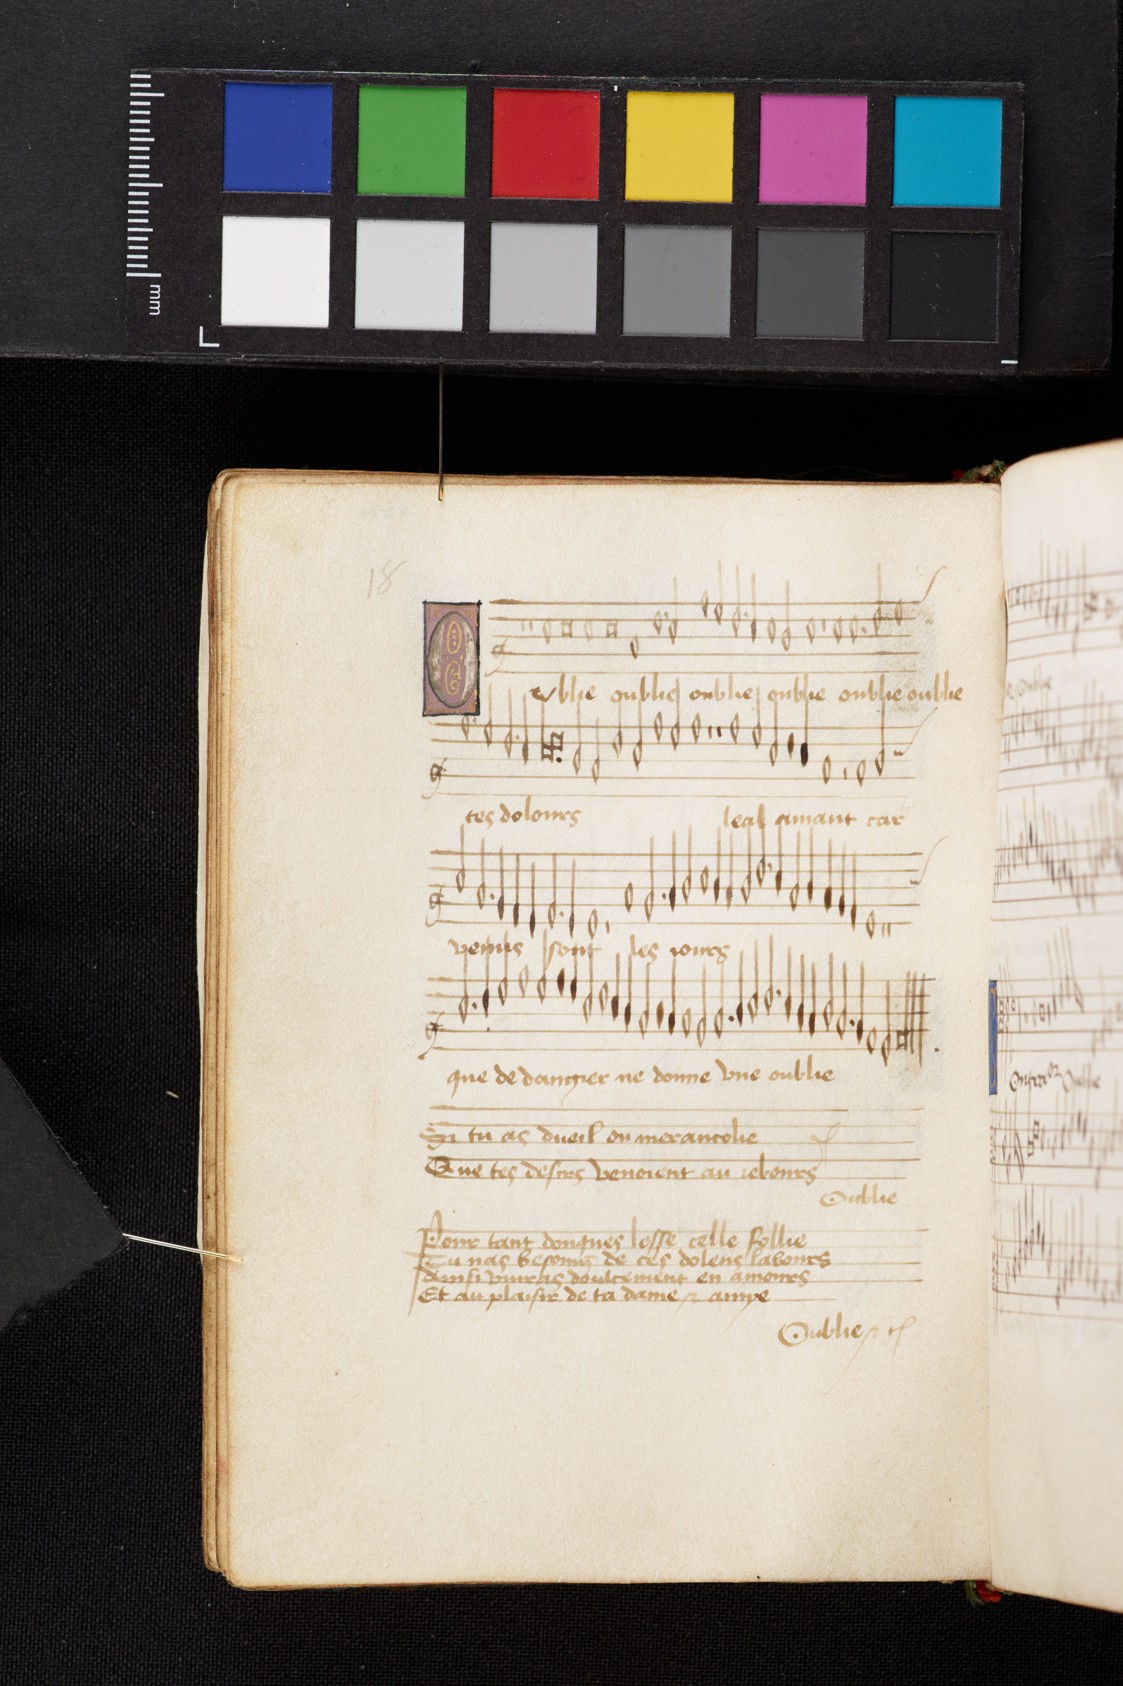 mm
18
Oublie oublie oublie oublie oublie oublie
tes dolours leal amant car
venus sont les jours
que de dangier ne donne une oublie
Si tu as dueil ou merancolie
Que tes desirs venoient au rebours
Oublie
Pour tant donques lesse celle follie
Tu nas besoing de ces dolens labours
Ainsi vivras doulcement en amours
Et au plaisir de ta dame et amye
Oublie etc
Oublie
Oublie